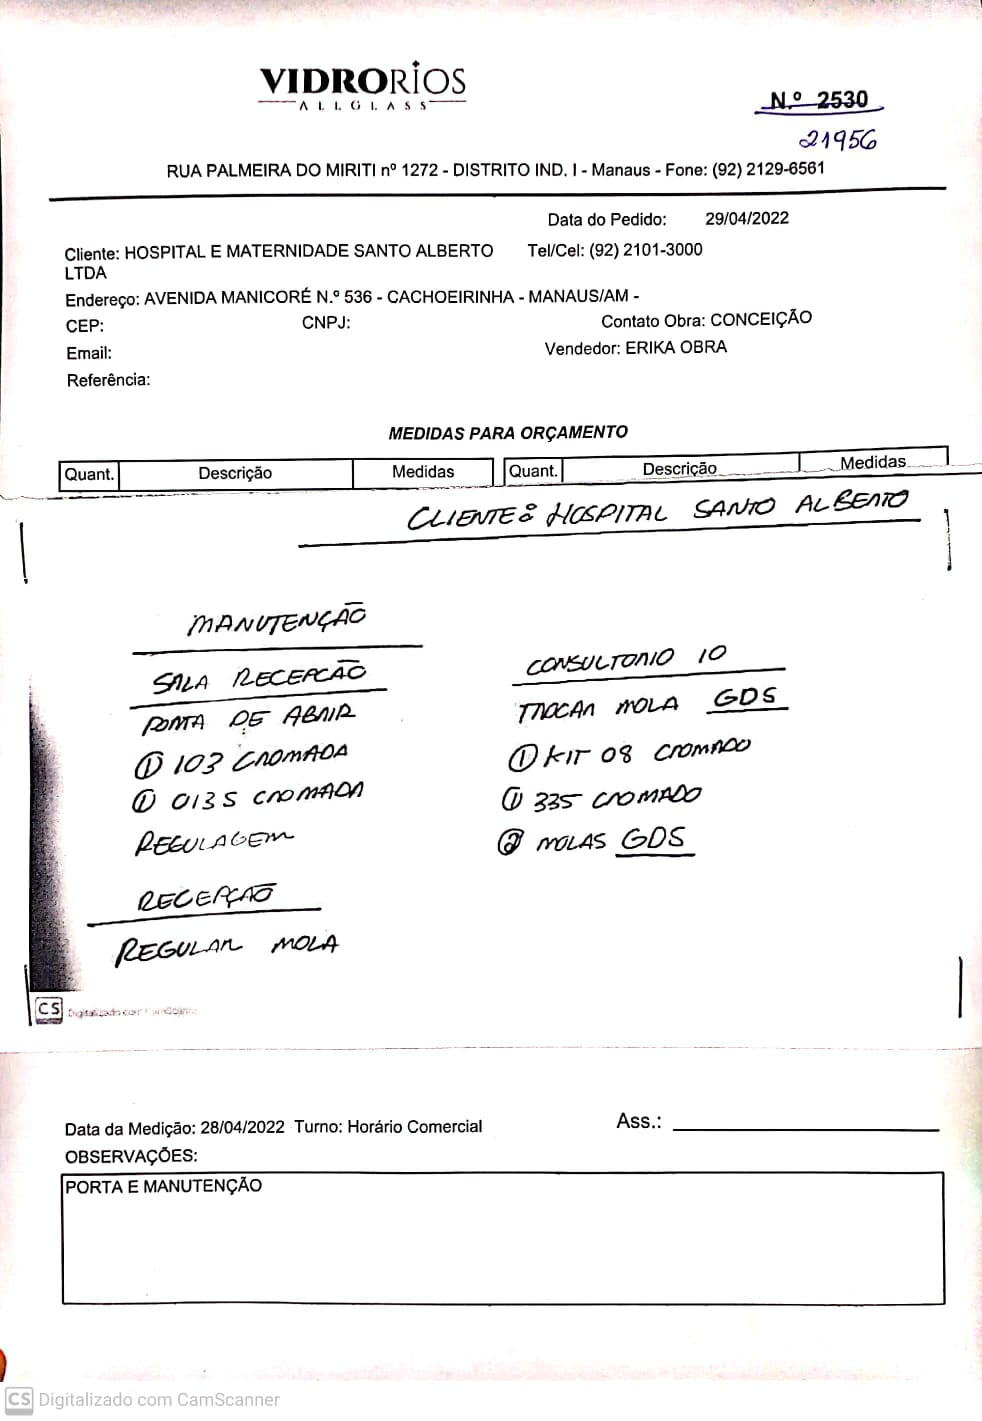 VIDRORIOS
ALLGLASS
N.º 2530
21956
RUA PALMEIRA DO MIRITI nº 1272 - DISTRITO IND. I - Manaus - Fone: (92) 2129-6561
Data do Pedido: 29/04/2022
Cliente: HOSPITAL E MATERNIDADE SANTO ALBERTO LTDA Tel/Cel: (92) 2101-3000
Endereço: AVENIDA MANICORÉ N.º 536 - CACHOEIRINHA - MANAUS/AM -
CEP: CNPJ: Contato Obra: CONCEIÇÃO
Email: Vendedor: ERIKA OBRA
Referência:
MEDIDAS PARA ORÇAMENTO
Quant. Descrição Medidas Quant. Descrição Medidas
CLIENTE: HOSPITAL SANTO ALBERTO
MANUTENÇÃO
SALA RECEPCÃO
PORTA DE ABRIR
① 103 CROMADA
① 0135 CROMADA
REGULAGEM
RECEPÇÃO
REGULAR MOLA
CONSULTORIO 10
TROCAR MOLA GDS
① KIT 08 CROMADO
① 335 CROMADO
② MOLAS GDS
CS Digitalizado com CamScanner
Data da Medição: 28/04/2022 Turno: Horário Comercial Ass.:
OBSERVAÇÕES:
PORTA E MANUTENÇÃO
CS Digitalizado com CamScanner